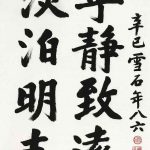 淡泊明志
寧靜致遠
辛巳雪石年八六